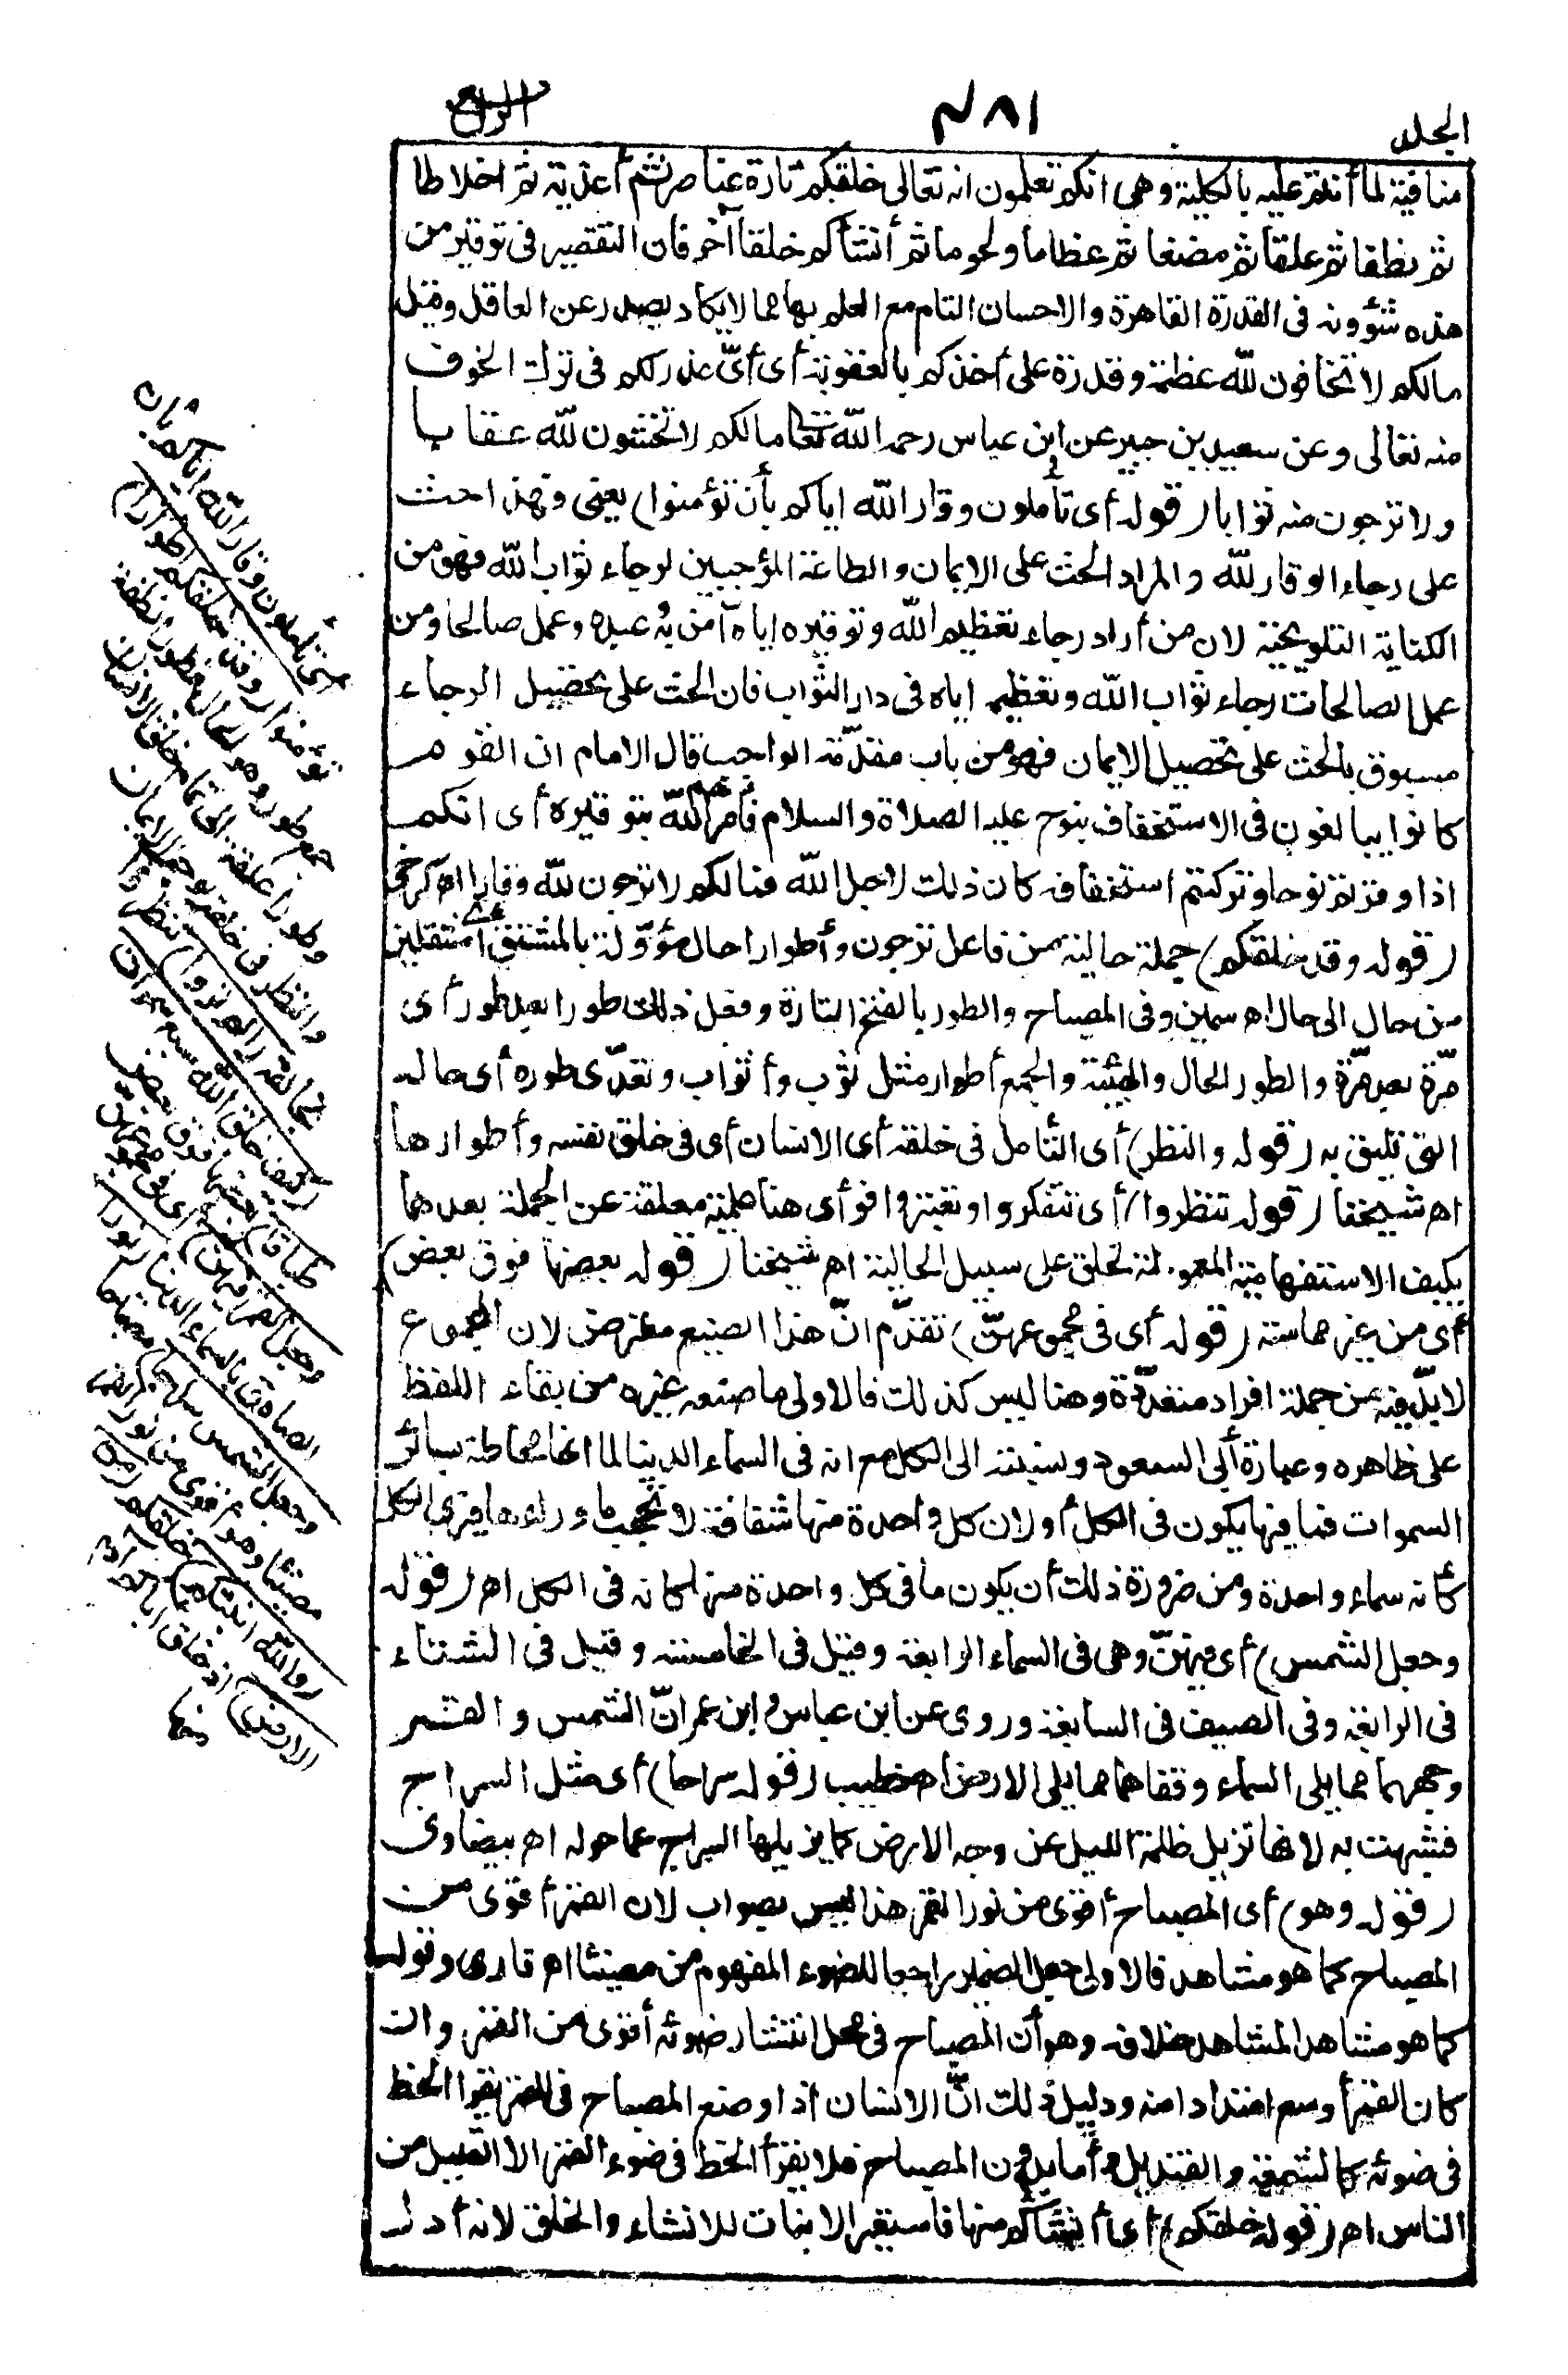 الجلد
٤٨١
الرابع
منافية لما أنتم عليه بالكلية وهى انكم تعلمون انه تعالى خلقكم تارة عناصر ثم أغذية ثم اخلاطا
ثم نطفا ثم علقا ثم مضغا ثم عظاما ولحوما ثم أنشأكم خلقا آخر فان التقصير فى توقير من
هذه شؤونه فى القدرة القاهرة والاحسان التام مع العلم بها مما لا يكاد يصدر عن العاقل وقيل
مالكم لا تخافون لله عظمة وقدرة على أخذكم بالعقوبة أى أىّ عذر لكم فى ترك الخوف
منه تعالى وعن سعيد بن جبير عن ابن عباس رحمه الله تعالى مالكم لا تخشون لله عقابا
ولا ترجون منه ثوابا (قوله أى تأملون وقار الله اياكم بأن تؤمنوا) يعنى وهذا حث
على رجاء الوقار لله والمراد الحث على الايمان والطاعة الموجبين لرجاء ثواب الله فهو من
الكناية التلويحية لان من أراد رجاء تعظيم الله وتوقيره اياه آمن به عبده وعمل صالحا ومن
عمل الصالحات رجاء ثواب الله وتعظيمه اياه فى دار الثواب فان الحث على تحصيل الرجاء
مسبوق بالحث على تحصيل الايمان فهو من باب مقدّمة الواجب قال الامام ان القوم
كانوا يبالغون فى الاستخفاف بنوح عليه الصلاة والسلام فأمرهم الله بتوقيره أى انكم
اذا وقرتم نوحا وتركتم استخفافه كان ذلك لاجل الله فمالكم لا ترجون لله وقارا اه كرخى
(قوله وقد خلقكم) جملة حالية من فاعل ترجون وأطوارا حال مؤوّلة بالمشتق أى منتقلين
من حال الى حال اه سمين وفى المصباح والطور بالفتح التارة وفعل ذلك طورا بعد طور أى
مرّة بعد مرّة والطور الحال والهيئة والجمع أطوار مثل ثوب وأثواب وتعدّى طوره أى حاله
التى تليق به (قوله والنظر) أى التأمل فى خلقه أى الانسان أى فى خلق نفسه وأطوارها
اه شيخنا (قوله تنظروا) أى تتفكروا وتعتبروا فرأى هنا علمية معلقة عن الجملة بعدها
بكيف الاستفهامية المعمولة لخلق على سبيل الحالية اه شيخنا (قوله بعضها فوق بعض)
أى من غير مماسة (قوله أى فى مجموعهنّ) تقدّم انّ هذا الصنيع معترض لان المجموع
لا بدّ فيه من جملة افراد متعدّدة وهنا ليس كذلك فالاولى ما صنعه غيره من بقاء اللفظ
على ظاهره وعبارة أبى السعود ونسبته الى الكل مع انه فى السماء الدنيا لما انها محاطة بسائر
السموات فما فيها يكون فى الكل أو لان كل واحدة منها شفافة لا تحجب ما وراءها فيرى الكل
كأنه سماء واحدة ومن ضرورة ذلك أن يكون ما فى كل واحدة منها كانه فى الكل اه (قوله
وجعل الشمس) أى فيهنّ وهى فى السماء الرابعة وقيل فى الخامسة وقيل فى الشتاء
فى الرابعة وفى الصيف فى السابعة وروى عن ابن عباس وابن عمر انّ الشمس والقمر
وجههما مما يلى السماء وقفاهما مما يلى الارض اه خطيب (قوله سراجا) أى مثل السراج
فشبهت به لانها تزيل ظلمة الليل عن وجه الارض كما يزيلها السراج عما حوله اه بيضاوى
(قوله وهو) أى المصباح أقوى من نور القمر هذا ليس بصواب لان القمر أقوى من
المصباح كما هو مشاهد فالاولى جعل الضمير راجعا للضوء المفهوم من مضيئا اه قارى وقوله
كما هو مشاهد المشاهد خلافه وهو أن المصباح فى محل انتشار ضوئه أقوى من القمر وان
كان القمر أوسع امتدادا منه ودليل ذلك انّ الانسان اذا وضع المصباح فى القمر يقرا الخط
فى ضوئه كالشمعة والقنديل وأما بدون المصباح فلا يقرأ الخط فى ضوء القمر الا القليل من
الناس اه (قوله خلقكم) أى أنشأكم منها فاستعير الانبات للانشاء والخلق لانه أدل
أى تأملون وقار الله اياكم بأن
تؤمنوا (وقد خلقكم أطوارا)
جمع طور وهو الحال فطورا نطفة
وطورا علقة الى تمام خلق الانسان
والنظر فى خلقه يوجب الايمان
بخالقه (الم تروا) تنظروا
(كيف خلق الله سبع سموات
طباقا) بعضها فوق بعض
(وجعل القمر فيهن) أى فى مجموعهن
الصادق بالسماء الدنيا (نورا
وجعل الشمس سراجا) مصباحا
مضيئا وهو أقوى من نور القمر
(والله أنبتكم) خلقكم (من
الارض) اذ خلق أباكم آدم
منها